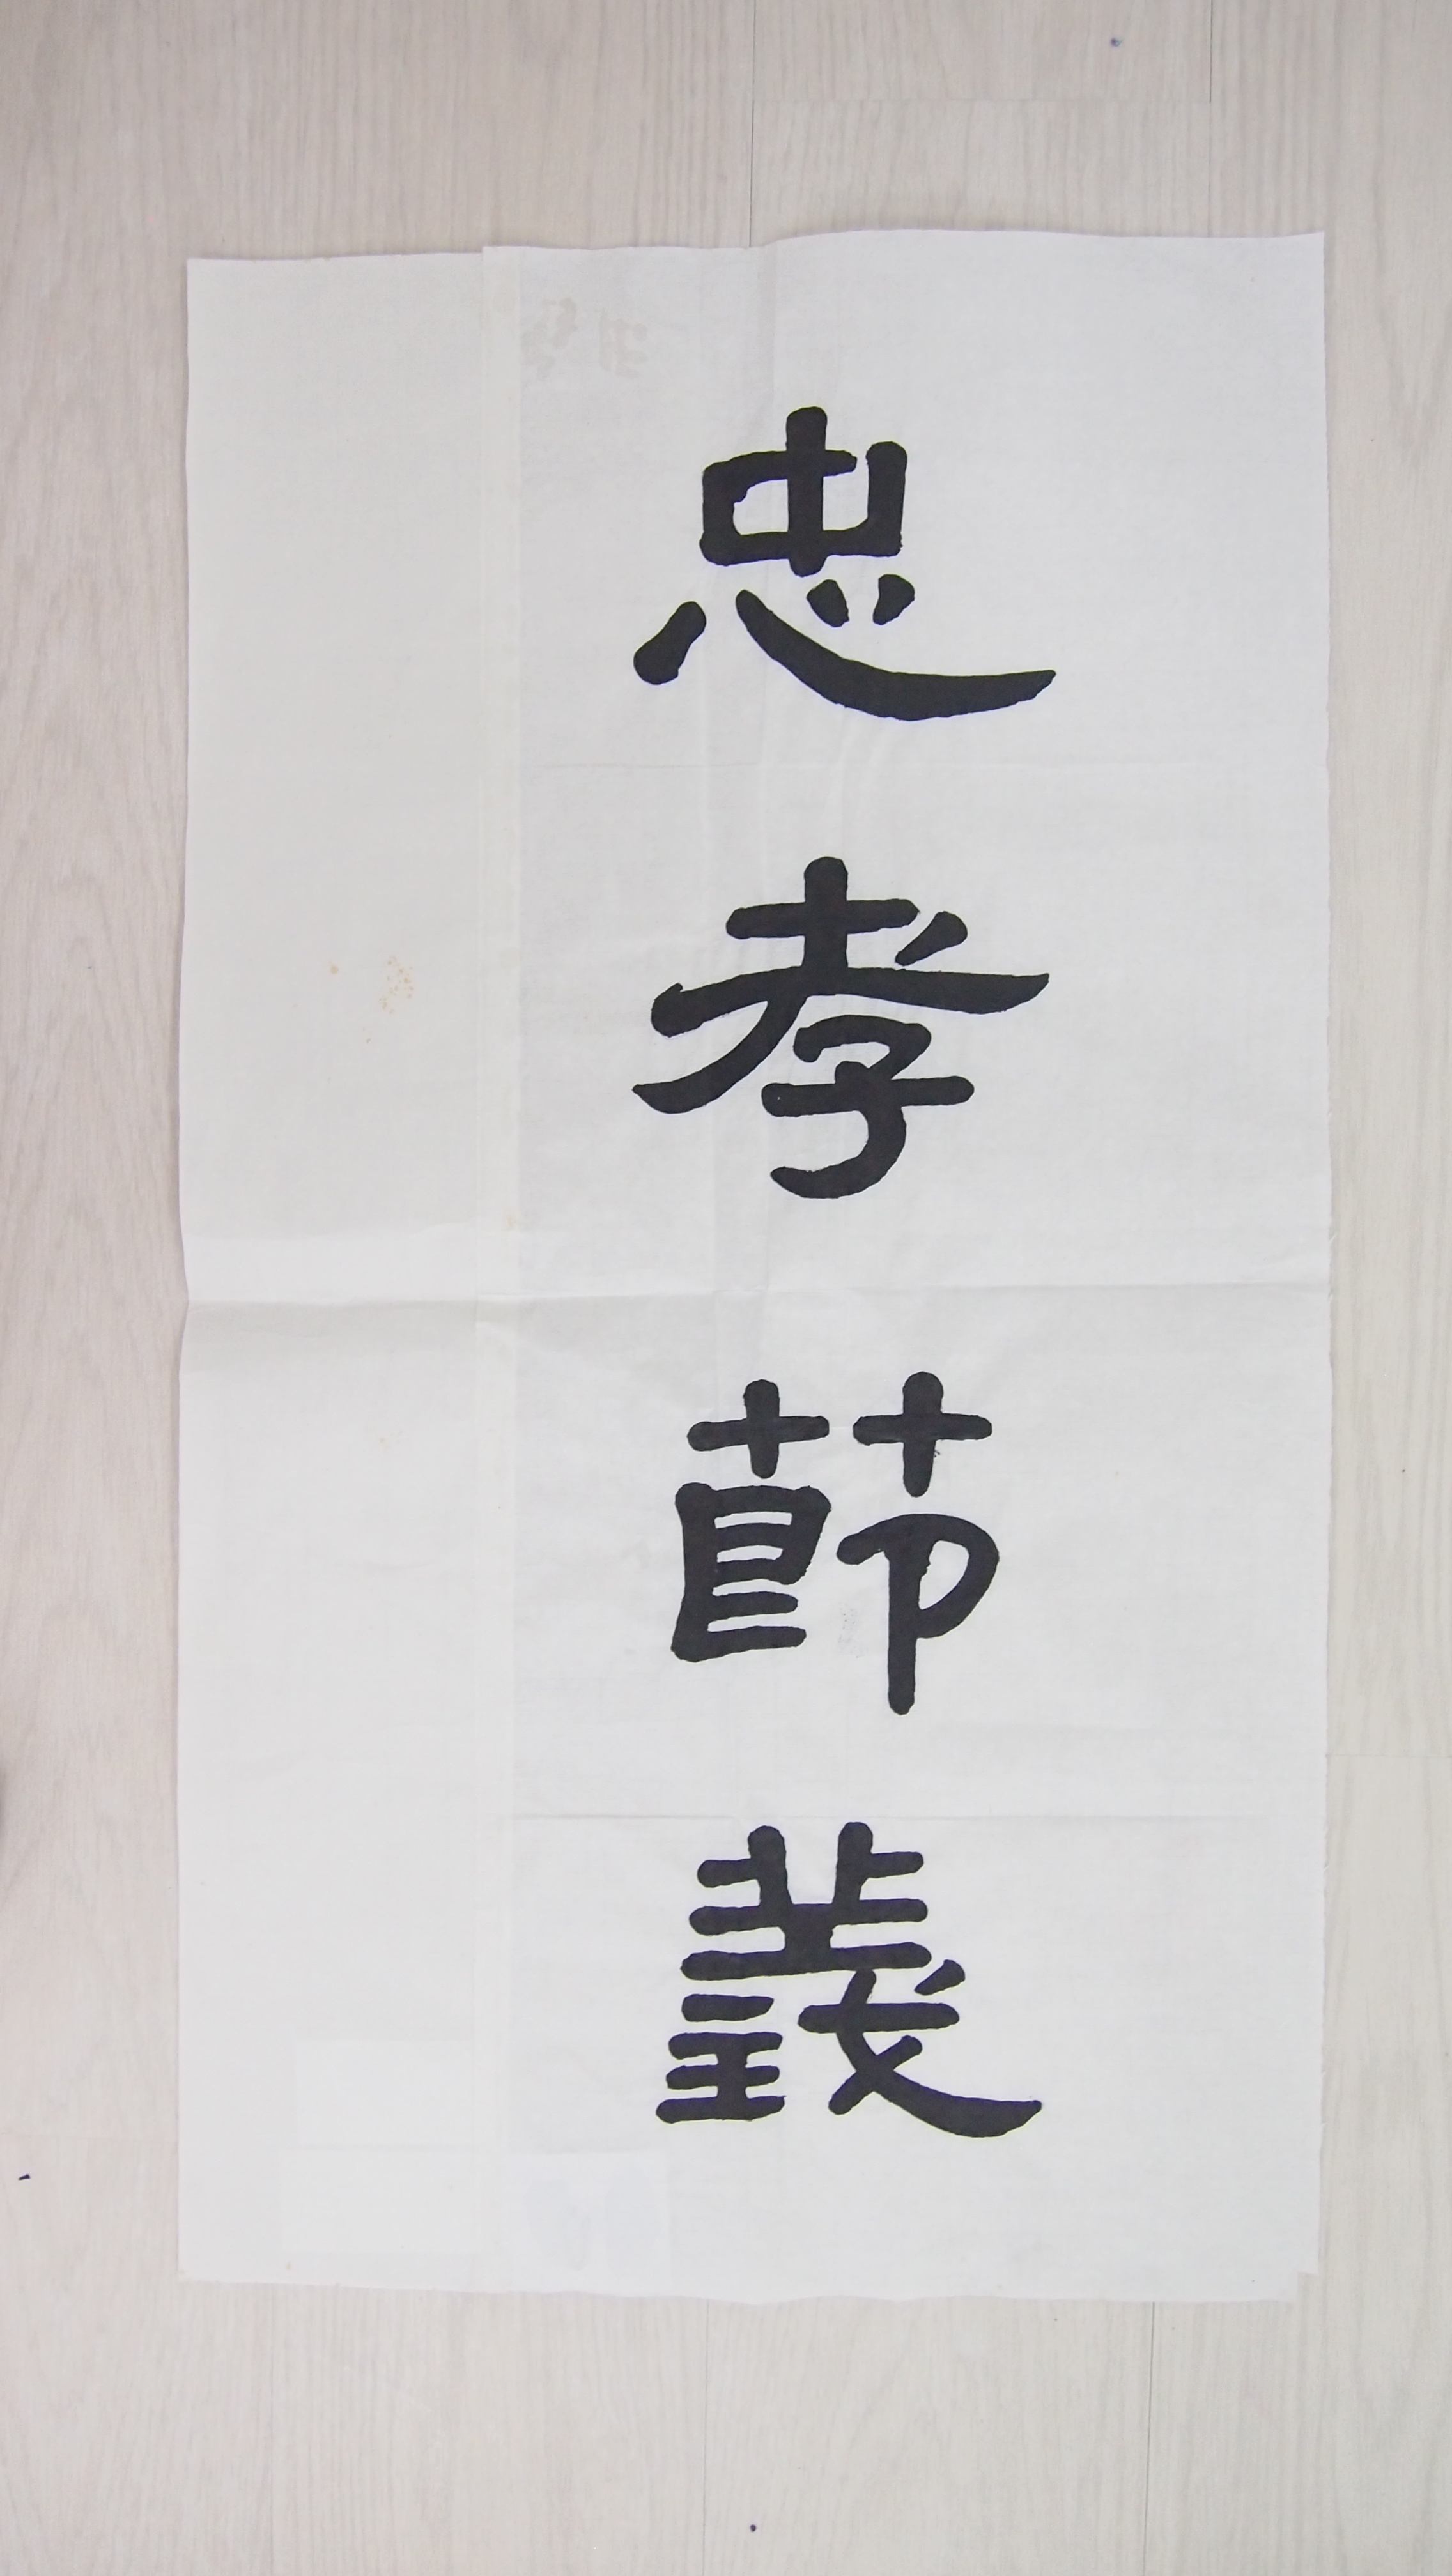 忠孝節義